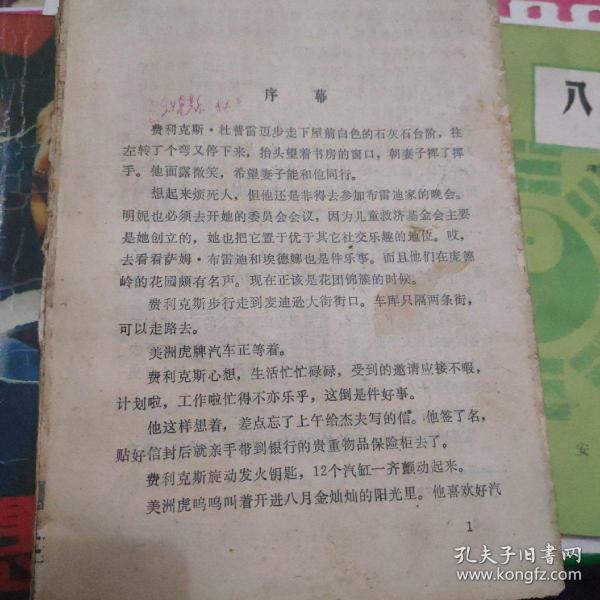 序幕
费利克斯·杜普雷迈步走下屋前白色的石灰石台阶，往
左转了个弯又停下来，抬头望着书房的窗口，朝妻子挥了挥
手。他面露微笑，希望妻子能和他同行。
想起来烦死人，但他还是非得去参加布雷迪家的晚会。
明妮也必须去开她的委员会会议，因为儿童救济基金会主要
是她创立的，她也把它置于优于其它社交乐趣的地位。哎，
去看看萨姆·布雷迪和埃德娜也是件乐事。而且他们在庞德
岭的花园颇有名声。现在正该是花团锦簇的时候。
费利克斯步行走到麦迪逊大街街口。车库只隔两条街，
可以走路去。
美洲虎牌汽车正等着。
费利克斯心想，生活忙忙碌碌，受到的邀请应接不暇，
计划啦，工作啦忙得不亦乐乎，这倒是件好事。
他这样想着，差点忘了上午给杰夫写的信。他签了名，
贴好信封后就亲手带到银行的贵重物品保险柜去了。
费利克斯旋动发火钥匙，12个汽缸一齐颤动起来。
美洲虎呜呜叫着开进八月金灿灿的阳光里。他喜欢好汽
1
八
安
孔夫子旧书网
www.kongfz.com